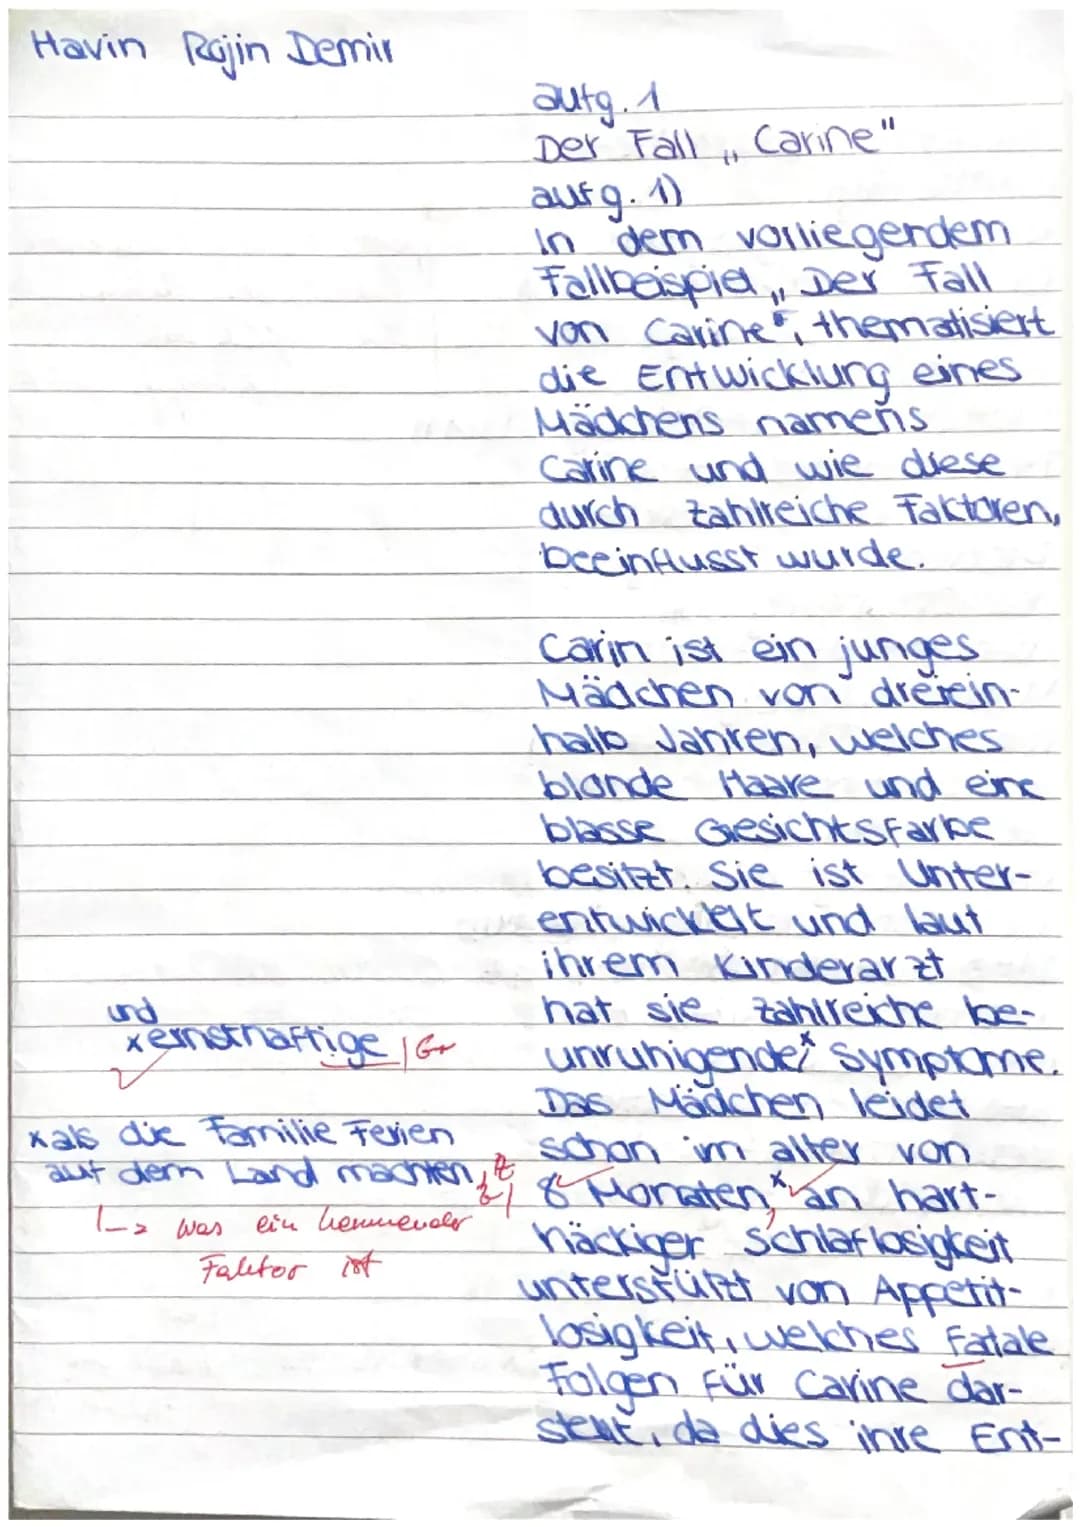 Havin Rojin Demir
aufg. 1
Der Fall „Carine"
aufg. 1)
In dem vorliegendem
Fallbeispiel „Der Fall
von Carine", thematisiert
die Entwicklung eines
Mädchens namens
Carine und wie diese
durch zahlreiche Faktoren,
beeinflusst wurde.
Carin ist ein junges
Mädchen von dreiein-
halb Jahren, welches
blonde Haare und eine
blasse Gesichtsfarbe
besitzt. Sie ist Unter-
entwickelt und laut
ihrem Kinderarzt
hat sie zahlreiche be-
unruhigende x Symptome.
und
x ernsthaftige | Gr
Das Mädchen leidet
schon im alter von
8 Monaten, x an hart-
x als die Familie Ferien
auf dem Land machten, Z
näckiger Schlaflosigkeit
was ein hemmender
Faktor ist
unterstützt von Appetit-
losigkeit, welches Fatale
Folgen für Carine dar-
stellt, da dies ihre Ent-